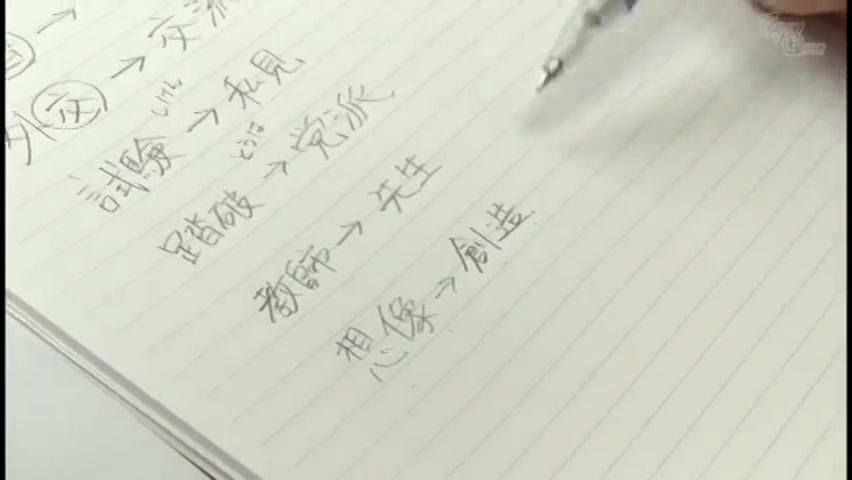 外交→交流
試験→私見
しけん
踏破→党派
とうは
教師→先生
想像→創造